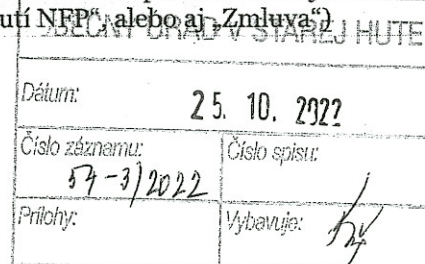 utí NFP“, alebo aj „Zmluva“)
OBECNÝ ÚRAD V STAREJ HUTE
Dátum:
25. 10. 2022
Číslo záznamu:
Číslo spisu:
54-3/2022
Prílohy:
Vybavuje: